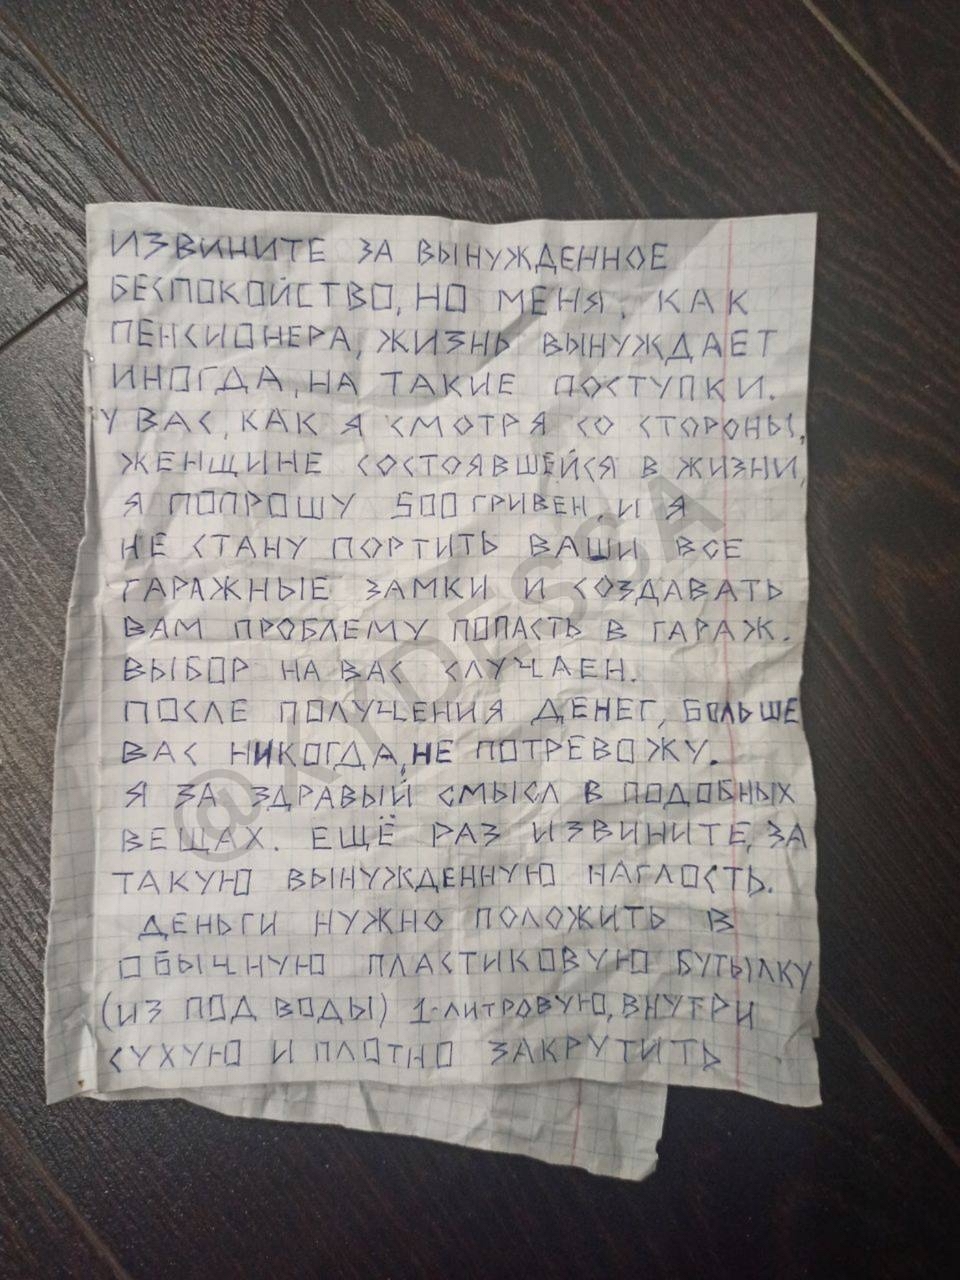 ИЗВИНИТЕ ЗА ВЫНУЖДЕННОЕ
БЕСПОКОЙСТВО, НО МЕНЯ, КАК
ПЕНСИОНЕРА, ЖИЗНЬ ВЫНУЖДАЕТ
ИНОГДА, НА ТАКИЕ ПОСТУПКИ.
У ВАС, КАК Я СМОТРЯ СО СТОРОНЫ,
ЖЕНЩИНЕ СОСТОЯВШЕЙСЯ В ЖИЗНИ,
Я ПОПРОШУ 500 ГРИВЕН, И Я
НЕ СТАНУ ПОРТИТЬ ВАШИ ВСЕ
ГАРАЖНЫЕ ЗАМКИ И СОЗДАВАТЬ
ВАМ ПРОБЛЕМУ ПОПАСТЬ В ГАРАЖ.
ВЫБОР НА ВАС СЛУЧАЕН.
ПОСЛЕ ПОЛУЧЕНИЯ ДЕНЕГ, БОЛЬШЕ
ВАС НИКОГДА, НЕ ПОТРЕВОЖУ.
Я ЗА ЗДРАВЫЙ СМЫСЛ В ПОДОБНЫХ
ВЕЩАХ. ЕЩЁ РАЗ ИЗВИНИТЕ, ЗА
ТАКУЮ ВЫНУЖДЕННУЮ НАГЛОСТЬ.
ДЕНЬГИ НУЖНО ПОЛОЖИТЬ В
ОБЫЧНУЮ ПЛАСТИКОВУЮ БУТЫЛКУ
(ИЗ ПОД ВОДЫ) 1-ЛИТРОВУЮ, ВНУТРИ
СУХУЮ И ПЛОТНО ЗАКРУТИТЬ
@XYDESSA